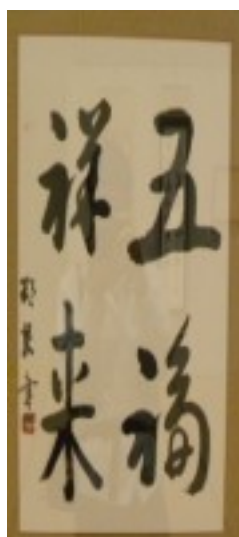 五福
祥来